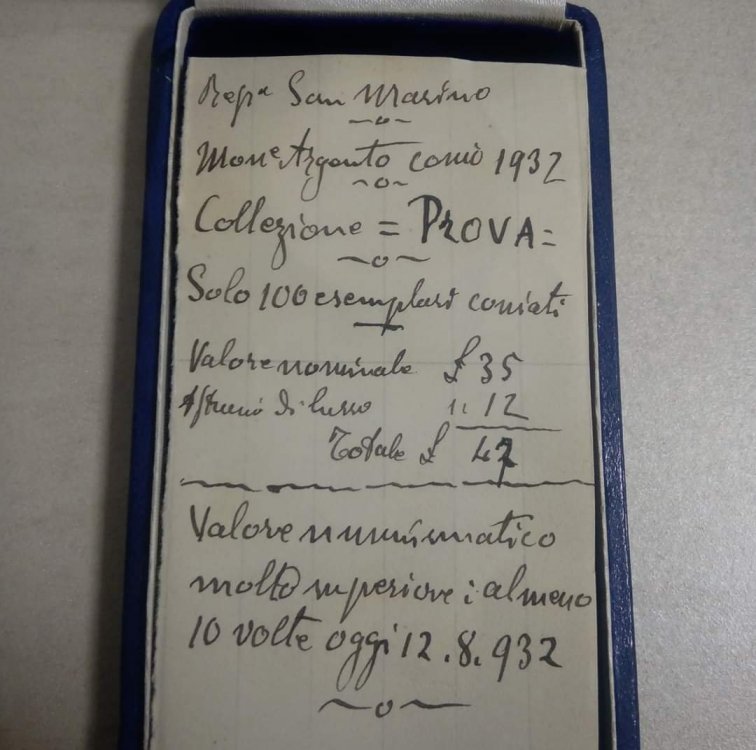 Repᵃ San Marino
Monᵉ Argento conio 1932
Collezione = PROVA =
Solo 100 esemplari coniati
Valore nominale £ 35
Astuccio di lusso " 12
Totale £ 47
Valore numismatico
molto superiore: almeno
10 volte oggi 12.8.932